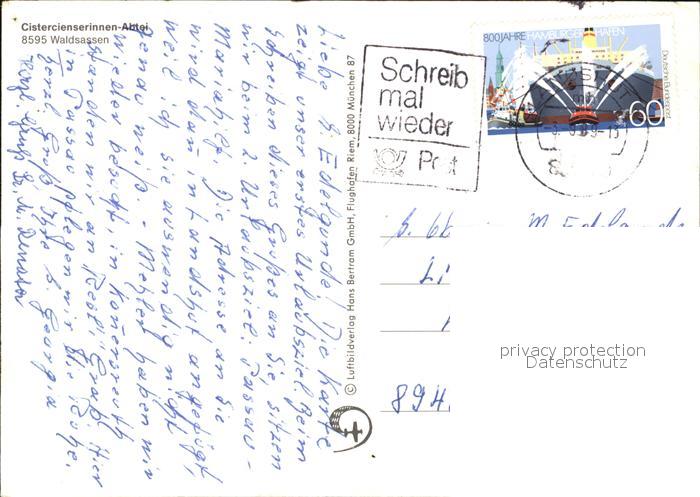 Cistercienserinnen-Abtei
8595 Waldsassen
Liebe S. Edelgunde! Die Karte
zeigt unser erstes Urlaubsziel. Beim
Schreiben dieses Grußes an Sie, sitzen
wir beim 2. Urlaubsziel: Passau-
Mariahilf. Die Adresse an Sie
wird dann in Landshut angefügt,
weil ich sie auswendig nicht
genau weiß. - Mehler haben wir
wieder besucht, in Konnersreuth
waren wir an Resls Grab. Hier
in Passau pflegen wir die Ruhe.
Herzl. Grüße Ihre S. Georgia
© Luftbildverlag Hans Bertram GmbH, Flughafen Riem, 8000 München 87
Schreib
mal
wieder
Post
800 JAHRE HAMBURGER HAFEN
Deutsche Bundespost
60
S. M. Edelgunde
894
privacy protection
Datenschutz